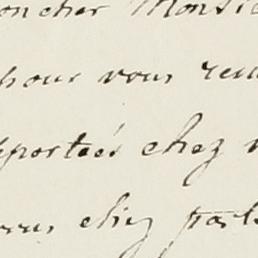 on cher Monsie
pour vous rem
pportées chez v
vous chez parl